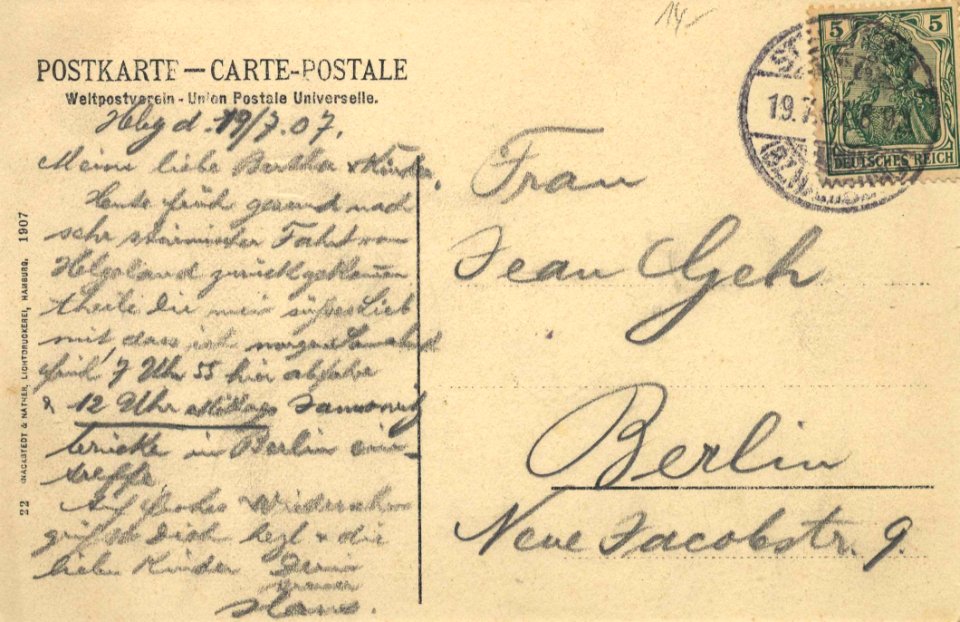 14,-
POSTKARTE — CARTE-POSTALE
Weltpostverein - Union Postale Universelle.
5 5
DEUTSCHES REICH
19.7.07
Hbg d. 19/7.07.
Meine liebe Bertha & Kinder,
Heute früh gesund nach
sehr stürmischer Fahrt von
Helgoland zurückgekommen
theile Dir mein süsses Lieb
mit, dass ich morgen Sonnabend
früh 7 Uhr 55 hier abfahre
& 12 Uhr Mittags Jannowitz
brücke in Berlin ein-
treffe.
Auf frohes Wiedersehn
grüsst Dich herzl & die
lieben Kinder Dein
treuer
Hans.
Frau
Jean
Berlin
Neue Jacobstr. 9.
22 KNACKSTEDT & NÄTHER, LICHTDRUCKEREI, HAMBURG. 1907